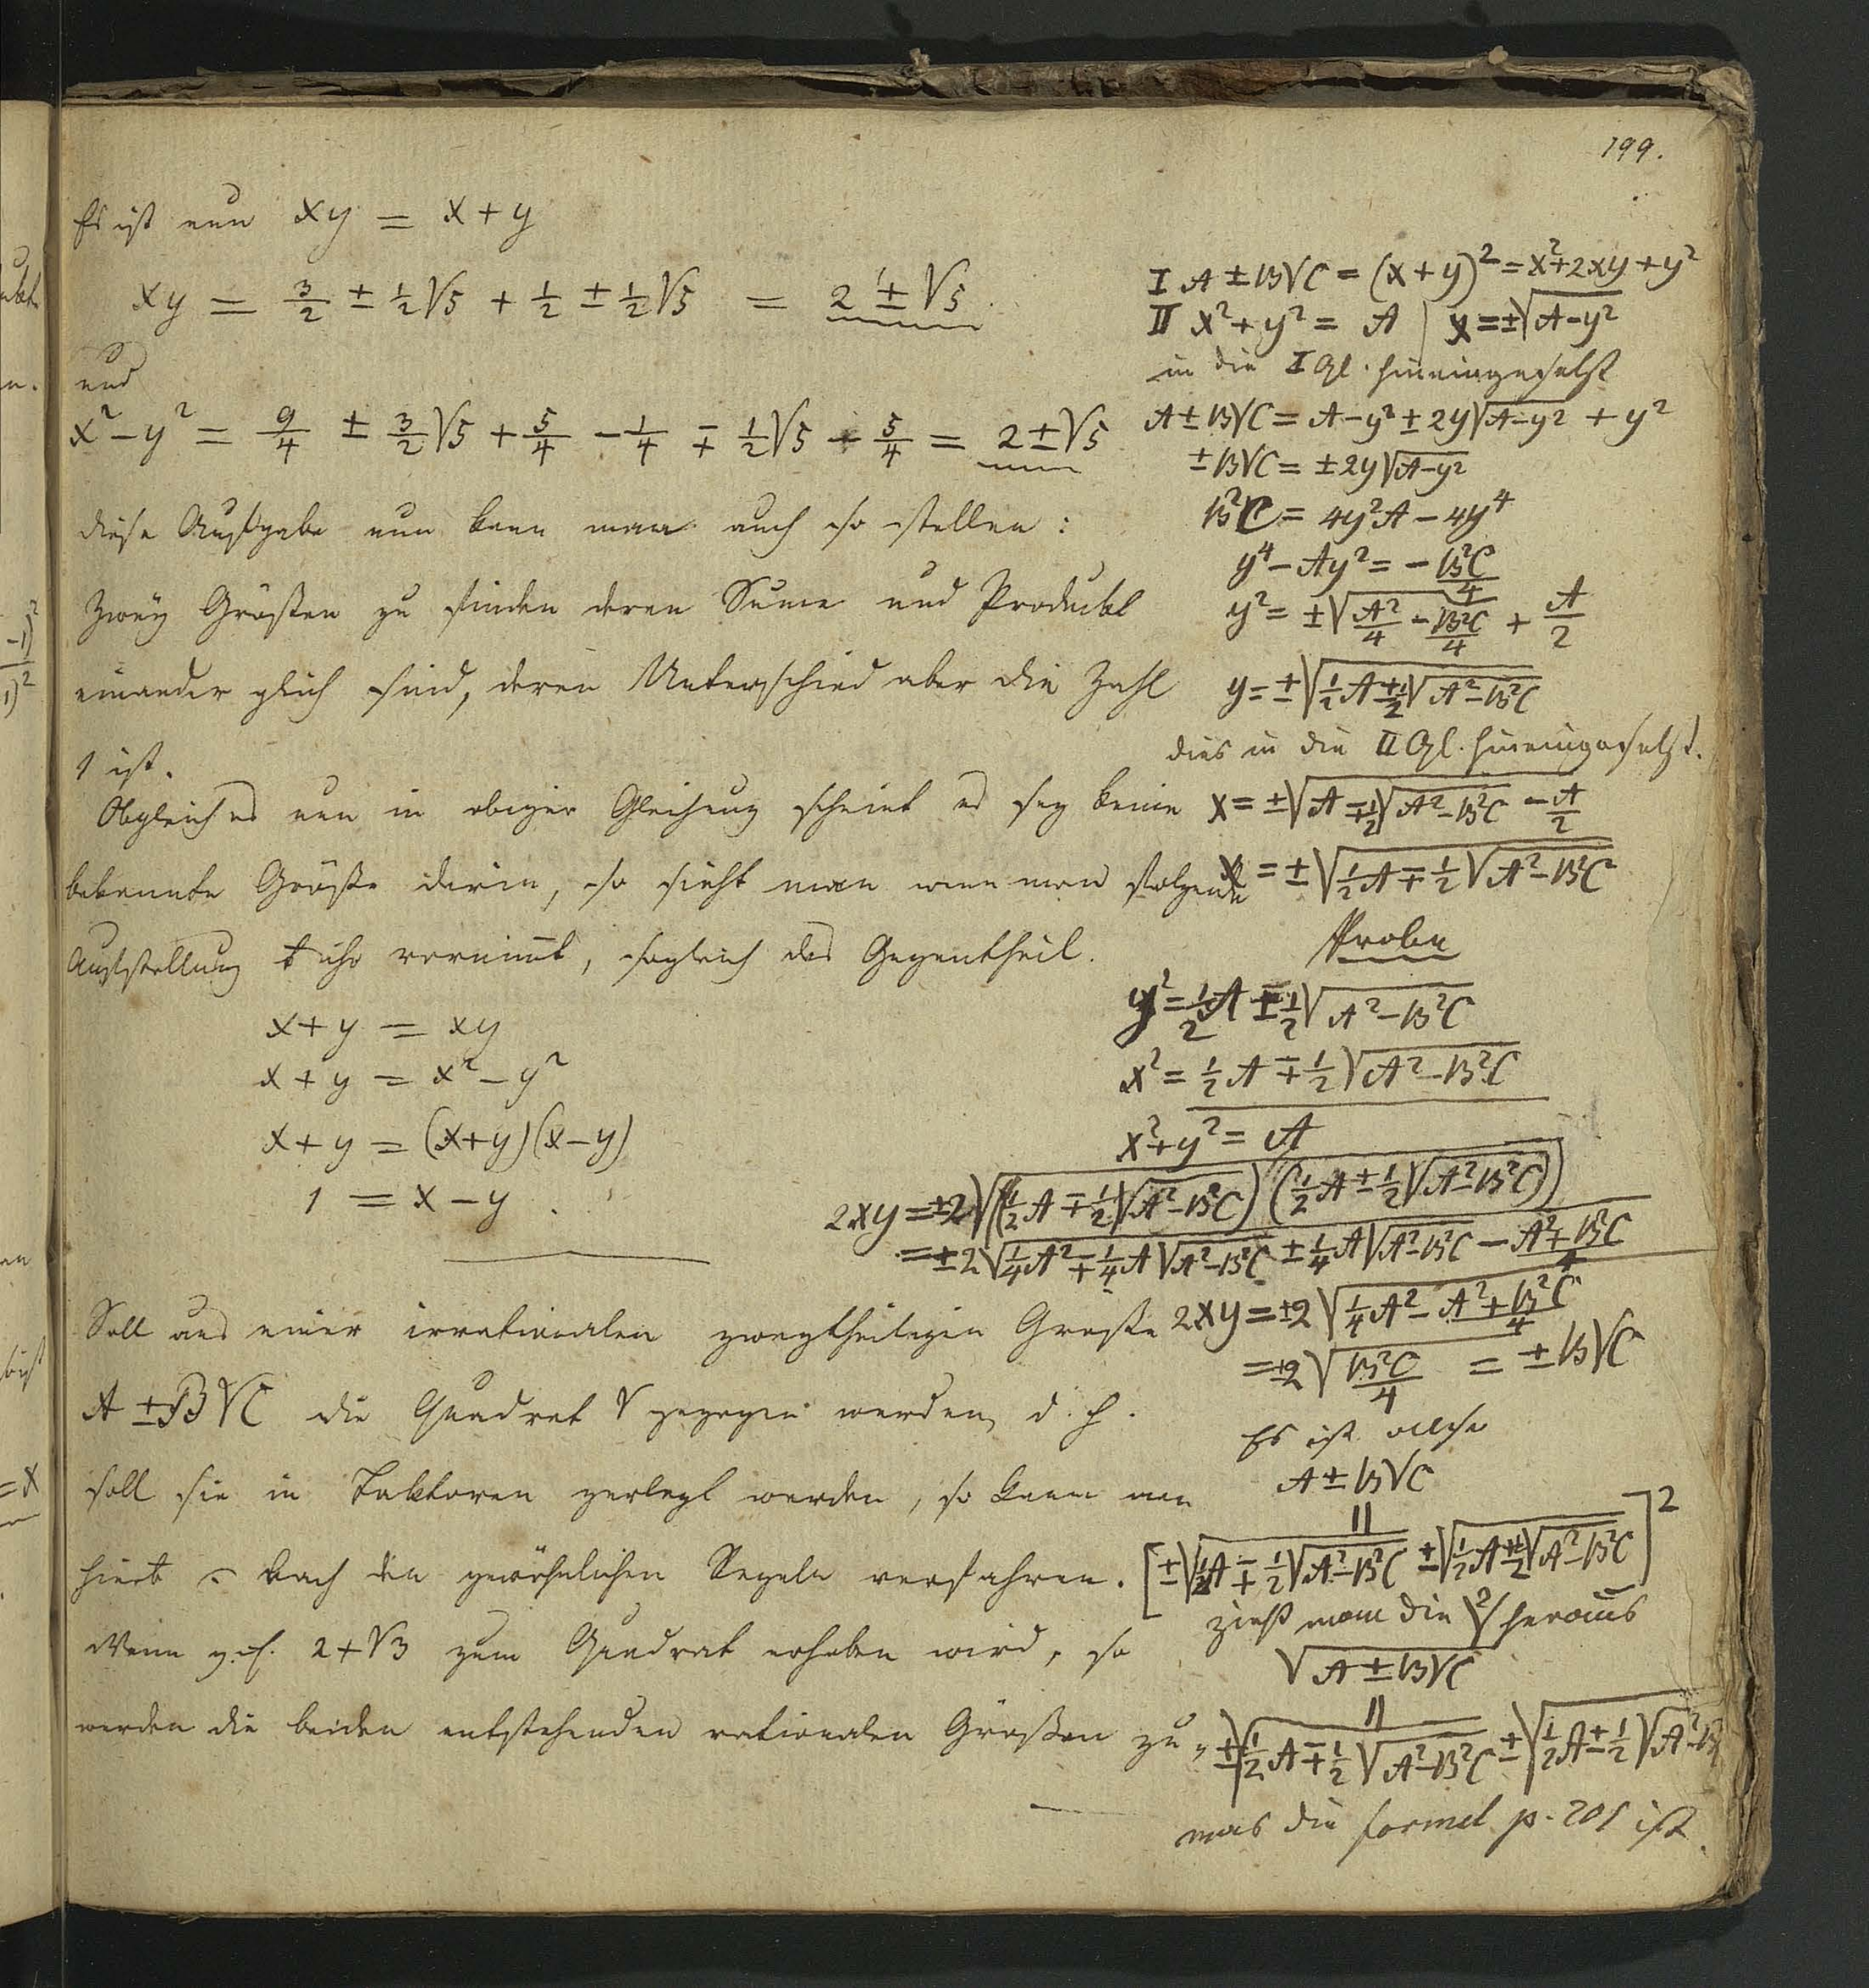 199.
Es ist nun xy = x + y
xy = 3/2 ± 1/2 √5 + 1/2 ± 1/2 √5 = 2 ± √5
und
x² − y² = 9/4 ± 3/2 √5 + 5/4 − 1/4 ∓ 1/2 √5 − 5/4 = 2 ± √5
diese Aufgabe nun kann man auch so stellen:
Zwey Größen zu finden deren Sume und Produckt
einander glich sind, deren Unterschied aber die Zahl
1 ist.
Obgleich es nun in obiger Gleichung scheint es sey keine
bekannte Größe darin, so sieht man wenn man folgende
Aufstellung vornimt, sogleich das Gegentheil.
x + y = xy
x + y = x² − y²
x + y = (x+y)(x−y)
1 = x − y.
Soll aus einer irrationalen zweytheiligen Große
A ± B√C die Quadrat √ gezogen werden, d. h.
soll sie in Faktoren zerlegt werden, so kann man
nach den gewöhnlichen Regeln verfahren.
Wenn z. B. 2 + √3 zum Quadrat erhoben wird, so
werden die beiden entstehenden rationalen Großen zu-
I A ± B√C = (x + y)² = x² + 2xy + y²
II x² + y² = A | x = ±√(A − y²)
in die I Gl. hineingesetzt
A ± B√C = A − y² ± 2y√(A − y²) + y²
± B√C = ± 2y√(A − y²)
B²C = 4y²A − 4y⁴
y⁴ − Ay² = − B²C/4
y² = ±√(A²/4 − B²C/4) + A/2
y = ±√(1/2 A ± 1/2 √(A² − B²C))
dies in die II Gl. hineingesetzt.
x = ±√(A ∓ 1/2 √(A² − B²C) − A/2)
x = ±√(1/2 A ∓ 1/2 √(A² − B²C))
Probe
y² = 1/2 A ± 1/2 √(A² − B²C)
x² = 1/2 A ∓ 1/2 √(A² − B²C)
x² + y² = A
2xy = ±2√((1/2 A ∓ 1/2 √(A² − B²C)) (1/2 A ± 1/2 √(A² − B²C)))
= ±2√(1/4 A² ∓ 1/4 A√(A² − B²C) ± 1/4 A√(A² − B²C) − A² + B²C/4)
2xy = ±2√(1/4 A² − A² + B²C/4)
= ±2√(B²C/4) = ± B√C
Es ist also
A ± B√C
||
[±√(1/2 A ∓ 1/2 √(A² − B²C)) ± √(1/2 A ± 1/2 √(A² − B²C))]²
zieht man die ²√ heraus
√(A ± B√C)
||
±√(1/2 A ∓ 1/2 √(A² − B²C)) ± √(1/2 A ± 1/2 √(A² − B²
was die formel p. 201 ist.